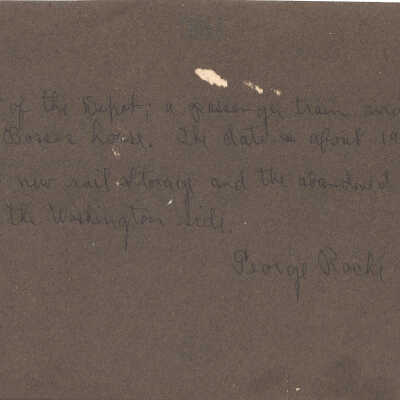 of the Depot; a passenger train
Bosses house. The date is about 19
new rail storage and the abandoned
the Washington side.
George Rocke